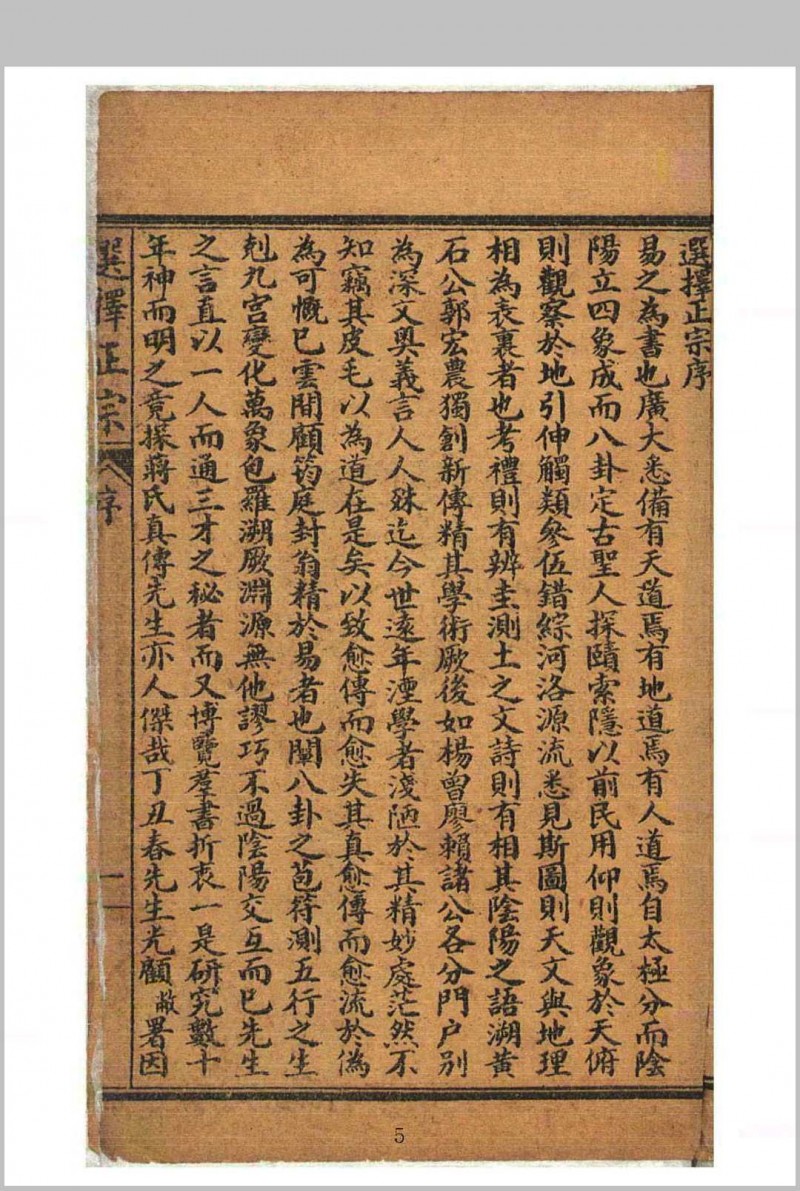 選擇正宗序
易之為書也廣大悉備有天道焉有地道焉有人道焉自太極分而陰
陽立四象成而八卦定古聖人探賾索隱以前民用仰則觀象於天俯
則觀察於地引伸觸類參伍錯綜河洛源流悉見斯圖則天文與地理
相為表裏者也考禮則有辨圭測土之文詩則有相其陰陽之語溯黃
石公郭宏農獨創新傳精其學術厥後如楊曾廖賴諸公各分門户別
為深文奧義言人人殊迄今世遠年湮學者淺陋於其精妙處茫然不
知竊其皮毛以為道在是矣以致愈傳而愈失其真愈傳而愈流於偽
為可慨已雲間顧筠庭封翁精於易者也闡八卦之苞符測五行之生
剋九宮變化萬象包羅溯厥淵源無他謬巧不過陰陽交互而已先生
之言直以一人而通三才之秘者而又博覽羣書折衷一是研究數十
年神而明之竟探蔣氏真傳先生亦人傑哉丁丑春先生光顧敝署因
選擇正宗 序 一
5